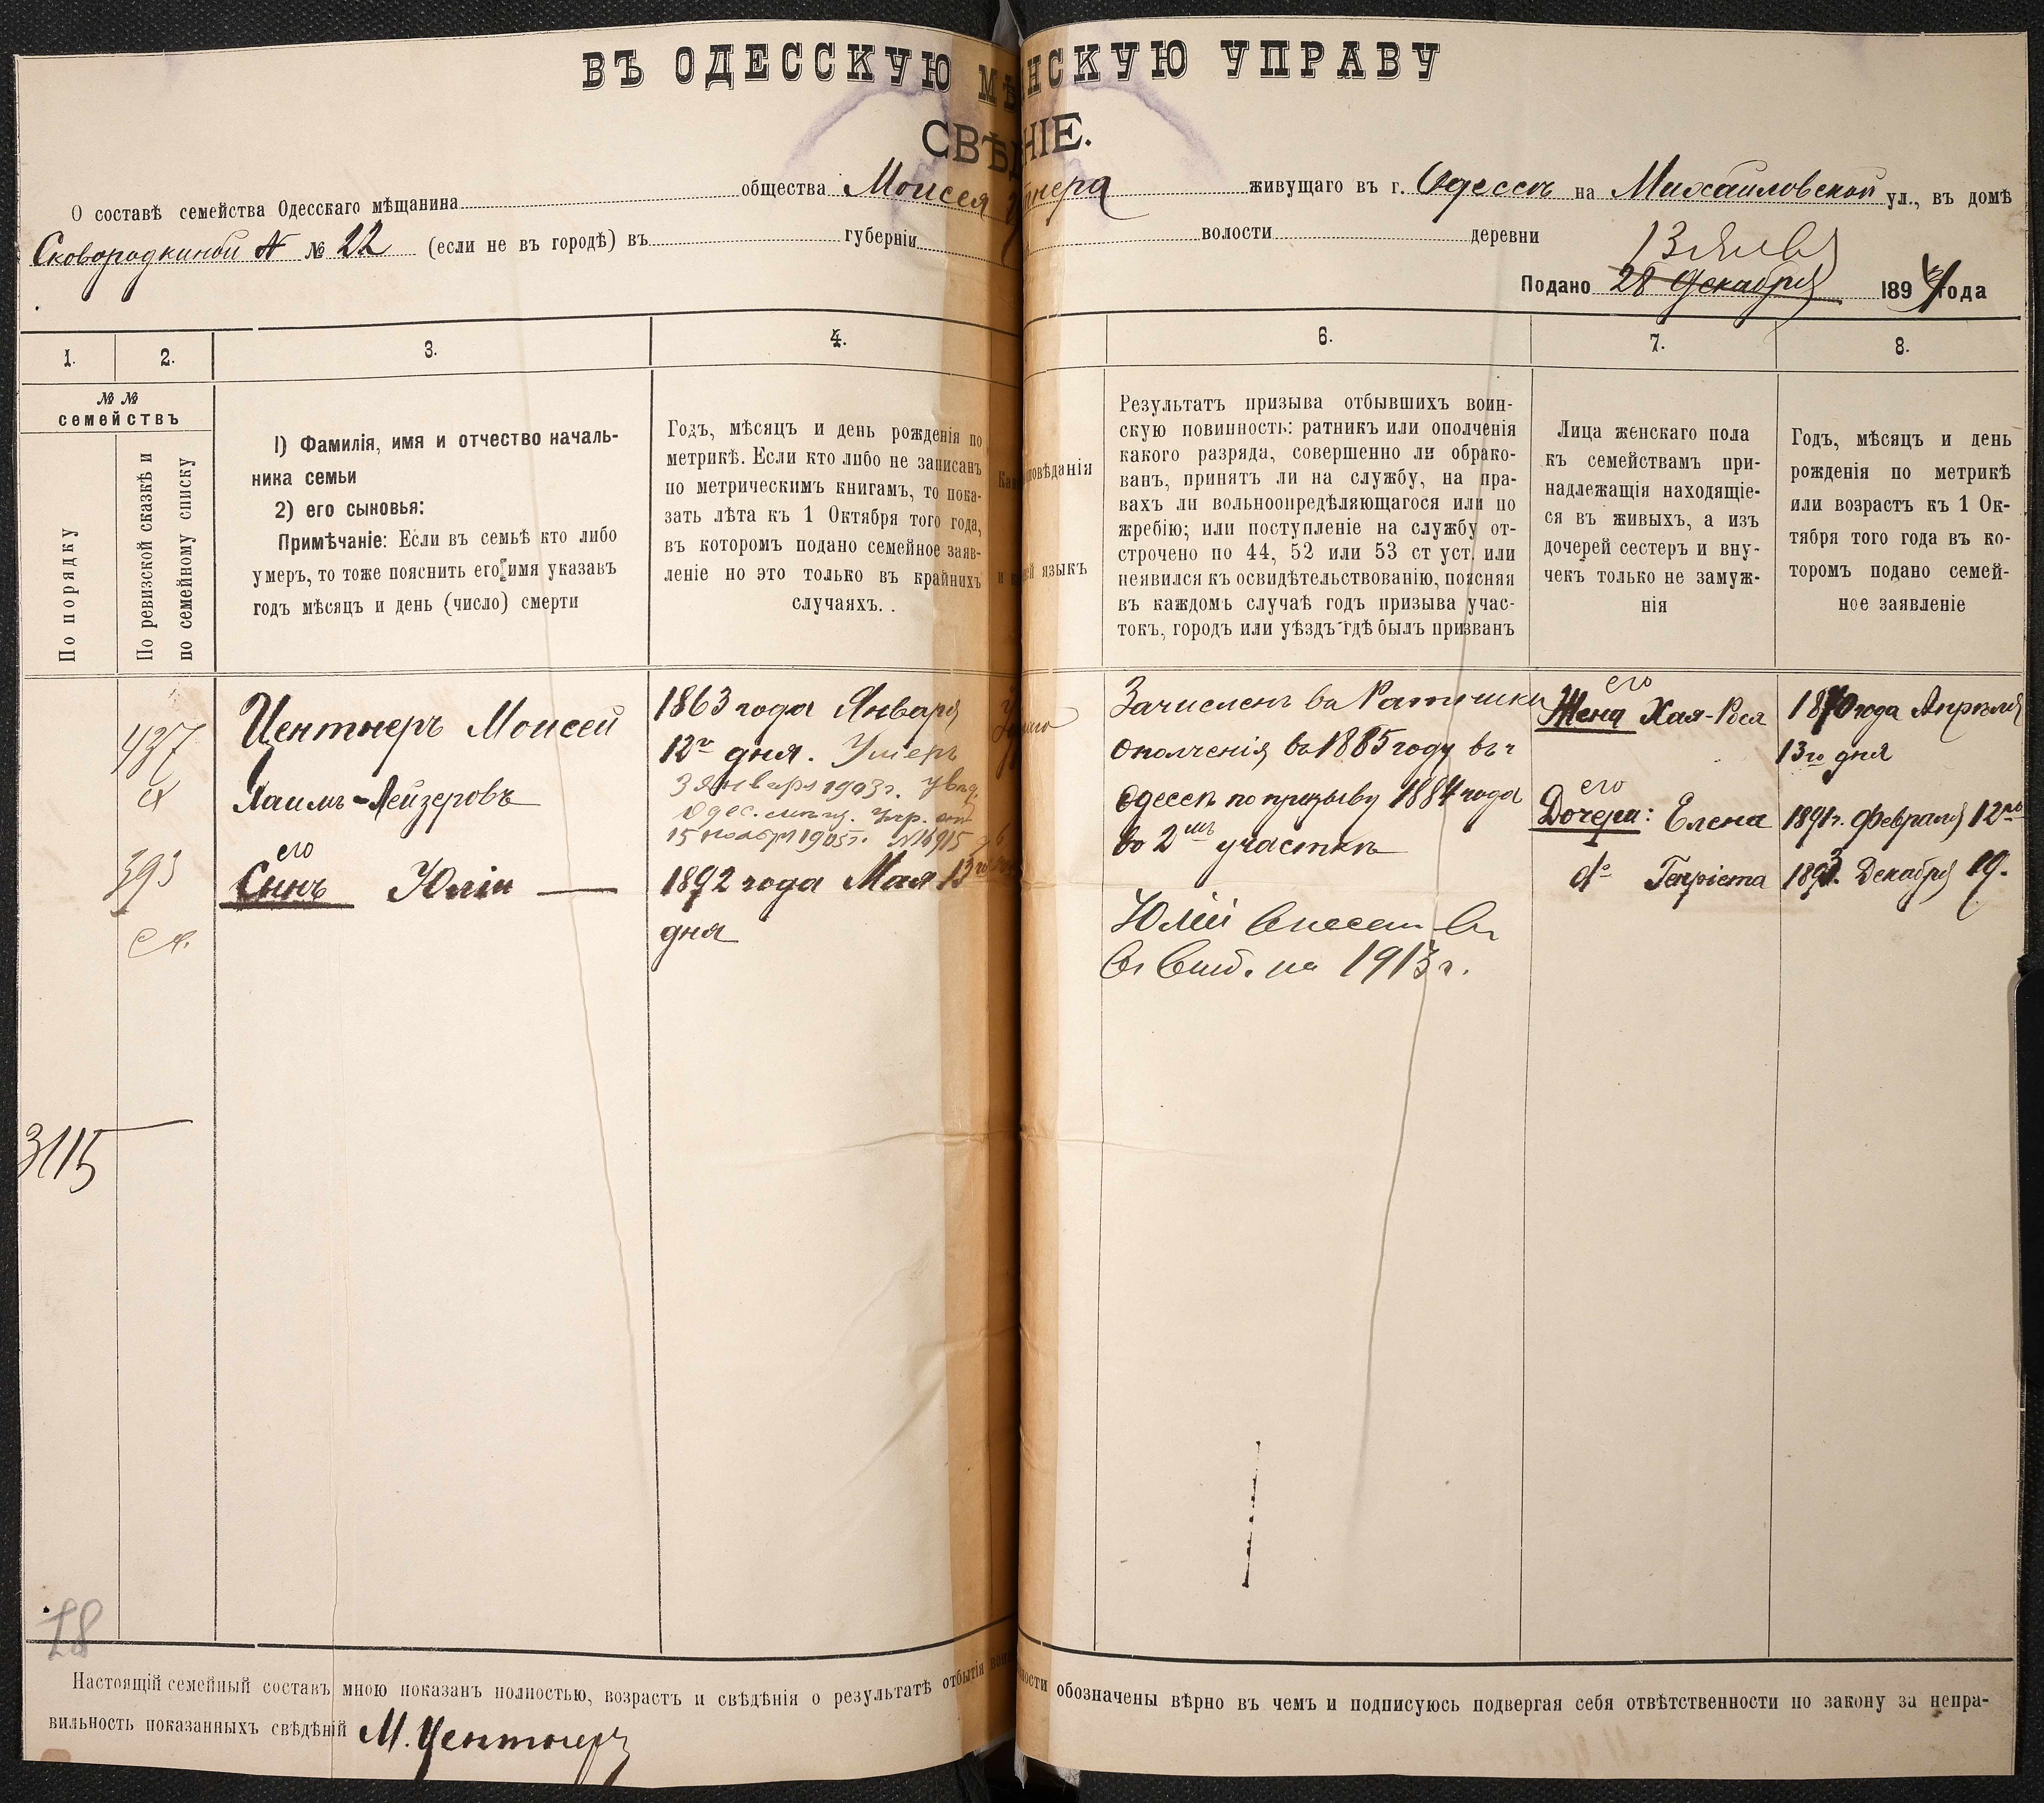 ВЪ ОДЕССКУЮ МѢ НСКУЮ УПРАВУ
СВѢД НІЕ.
О составѣ семейства Одесскаго мѣщанина общества Моисея тнера живущаго въ г. Одессѣ на Михайловской ул., въ домѣ
Сковородкиной № 22 (если не въ городѣ) въ губерніи волости деревни
13 Янв
Подано 28 Декабря 1894 года
1. 2. 3. 4. 6. 7. 8.
№ №
семействъ
По порядку
По ревизской сказкѣ и
по семейному списку
1) Фамилія, имя и отчество началь-
ника семьи
2) его сыновья:
Примѣчаніе: Если въ семьѣ кто либо
умеръ, то тоже пояснить его имя указавъ
годъ мѣсяцъ и день (число) смерти
Годъ, мѣсяцъ и день рожденія по
метрикѣ. Если кто либо не записанъ
по метрическимъ книгамъ, то пока-
зать лѣта къ 1 Октября того года,
въ которомъ подано семейное заяв-
леніе но это только въ крайнихъ
случаяхъ.
Как повѣданія
и к ей языкъ
Результатъ призыва отбывшихъ воин-
скую повинность: ратникъ или ополченія
какого разряда, совершенно ли обрако-
ванъ, принятъ ли на службу, на пра-
вахъ ли вольноопредѣляющагося или по
жребію; или поступленіе на службу от-
строчено по 44, 52 или 53 ст уст. или
неявился къ освидѣтельствованію, поясняя
въ каждомъ случаѣ годъ призыва учас-
токъ, городъ или уѣздъ гдѣ былъ призванъ
Лица женскаго пола
къ семействамъ при-
надлежащія находящіе-
ся въ живыхъ, а изъ
дочерей сестеръ и вну-
чекъ только не замуж-
нія
Годъ, мѣсяцъ и день
рожденія по метрикѣ
или возрастъ къ 1 Ок-
тября того года въ ко-
торомъ подано семей-
ное заявленіе
437
393
3115
Центнеръ Моисей
Хаимъ-Лейзеровъ
его
Сынъ Юлій
1863 года Января
12го дня. Умеръ
3 января 1903 г. увѣд.
Одес. мѣщ. Упр. от
15 ноября 1905 г. №16915
1892 года Мая 13го
дня
Зачисленъ въ Ратники
ополченія въ 1885 году въ г
Одессѣ по призыву 1884 года
во 2мъ участкѣ
Юлій внесен в
на 1913 г.
его
Жена Хая-Рося 1870 года Апрѣля
13го дня
его
Дочери: Елена 1891 г. Февраля 12го
do Генріета 1893. Декабря 19.
78
Настоящій семейный составъ мною показанъ полностью, возрастъ и свѣдѣнія о результатѣ отбытія вои ности обозначены вѣрно въ чемъ и подписуюсь подвергая себя отвѣтственности по закону за непра-
вильность показанныхъ свѣдѣній М. Центнеръ